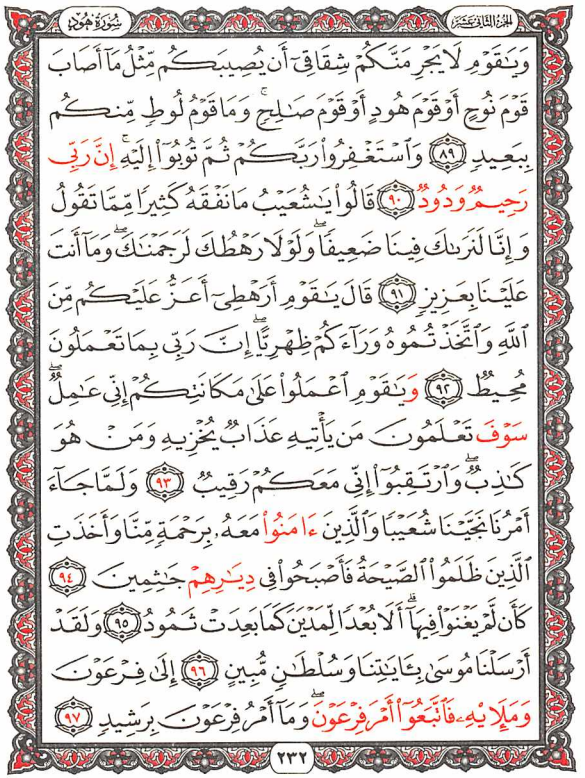 سُورَةُ هُودٍ
الجزء الثاني عشر
وَيَـٰقَوْمِ لَا يَجْرِمَنَّكُمْ شِقَاقِىٓ أَن يُصِيبَكُم مِّثْلُ مَآ أَصَابَ
قَوْمَ نُوحٍ أَوْ قَوْمَ هُودٍ أَوْ قَوْمَ صَـٰلِحٍ ۚ وَمَا قَوْمُ لُوطٍ مِّنكُم
بِبَعِيدٍ ٨٩ وَٱسْتَغْفِرُوا۟ رَبَّكُمْ ثُمَّ تُوبُوٓا۟ إِلَيْهِ ۚ إِنَّ رَبِّى
رَحِيمٌ وَدُودٌ ٩٠ قَالُوا۟ يَـٰشُعَيْبُ مَا نَفْقَهُ كَثِيرًا مِّمَّا تَقُولُ
وَإِنَّا لَنَرَىٰكَ فِينَا ضَعِيفًا ۖ وَلَوْلَا رَهْطُكَ لَرَجَمْنَـٰكَ ۖ وَمَآ أَنتَ
عَلَيْنَا بِعَزِيزٍ ٩١ قَالَ يَـٰقَوْمِ أَرَهْطِىٓ أَعَزُّ عَلَيْكُم مِّنَ
ٱللَّهِ وَٱتَّخَذْتُمُوهُ وَرَآءَكُمْ ظِهْرِيًّا ۖ إِنَّ رَبِّى بِمَا تَعْمَلُونَ
مُحِيطٌ ٩٢ وَيَـٰقَوْمِ ٱعْمَلُوا۟ عَلَىٰ مَكَانَتِكُمْ إِنِّى عَـٰمِلٌ ۖ
سَوْفَ تَعْلَمُونَ مَن يَأْتِيهِ عَذَابٌ يُخْزِيهِ وَمَنْ هُوَ
كَـٰذِبٌ ۖ وَٱرْتَقِبُوٓا۟ إِنِّى مَعَكُمْ رَقِيبٌ ٩٣ وَلَمَّا جَآءَ
أَمْرُنَا نَجَّيْنَا شُعَيْبًا وَٱلَّذِينَ ءَامَنُوا۟ مَعَهُۥ بِرَحْمَةٍ مِّنَّا وَأَخَذَتِ
ٱلَّذِينَ ظَلَمُوا۟ ٱلصَّيْحَةُ فَأَصْبَحُوا۟ فِى دِيَـٰرِهِمْ جَـٰثِمِينَ ٩٤
كَأَن لَّمْ يَغْنَوْا۟ فِيهَآ ۗ أَلَا بُعْدًا لِّمَدْيَنَ كَمَا بَعِدَتْ ثَمُودُ ٩٥ وَلَقَدْ
أَرْسَلْنَا مُوسَىٰ بِـَٔايَـٰتِنَا وَسُلْطَـٰنٍ مُّبِينٍ ٩٦ إِلَىٰ فِرْعَوْنَ
وَمَلَإِي۟هِۦ فَٱتَّبَعُوٓا۟ أَمْرَ فِرْعَوْنَ ۖ وَمَآ أَمْرُ فِرْعَوْنَ بِرَشِيدٍ ٩٧
٢٣٢